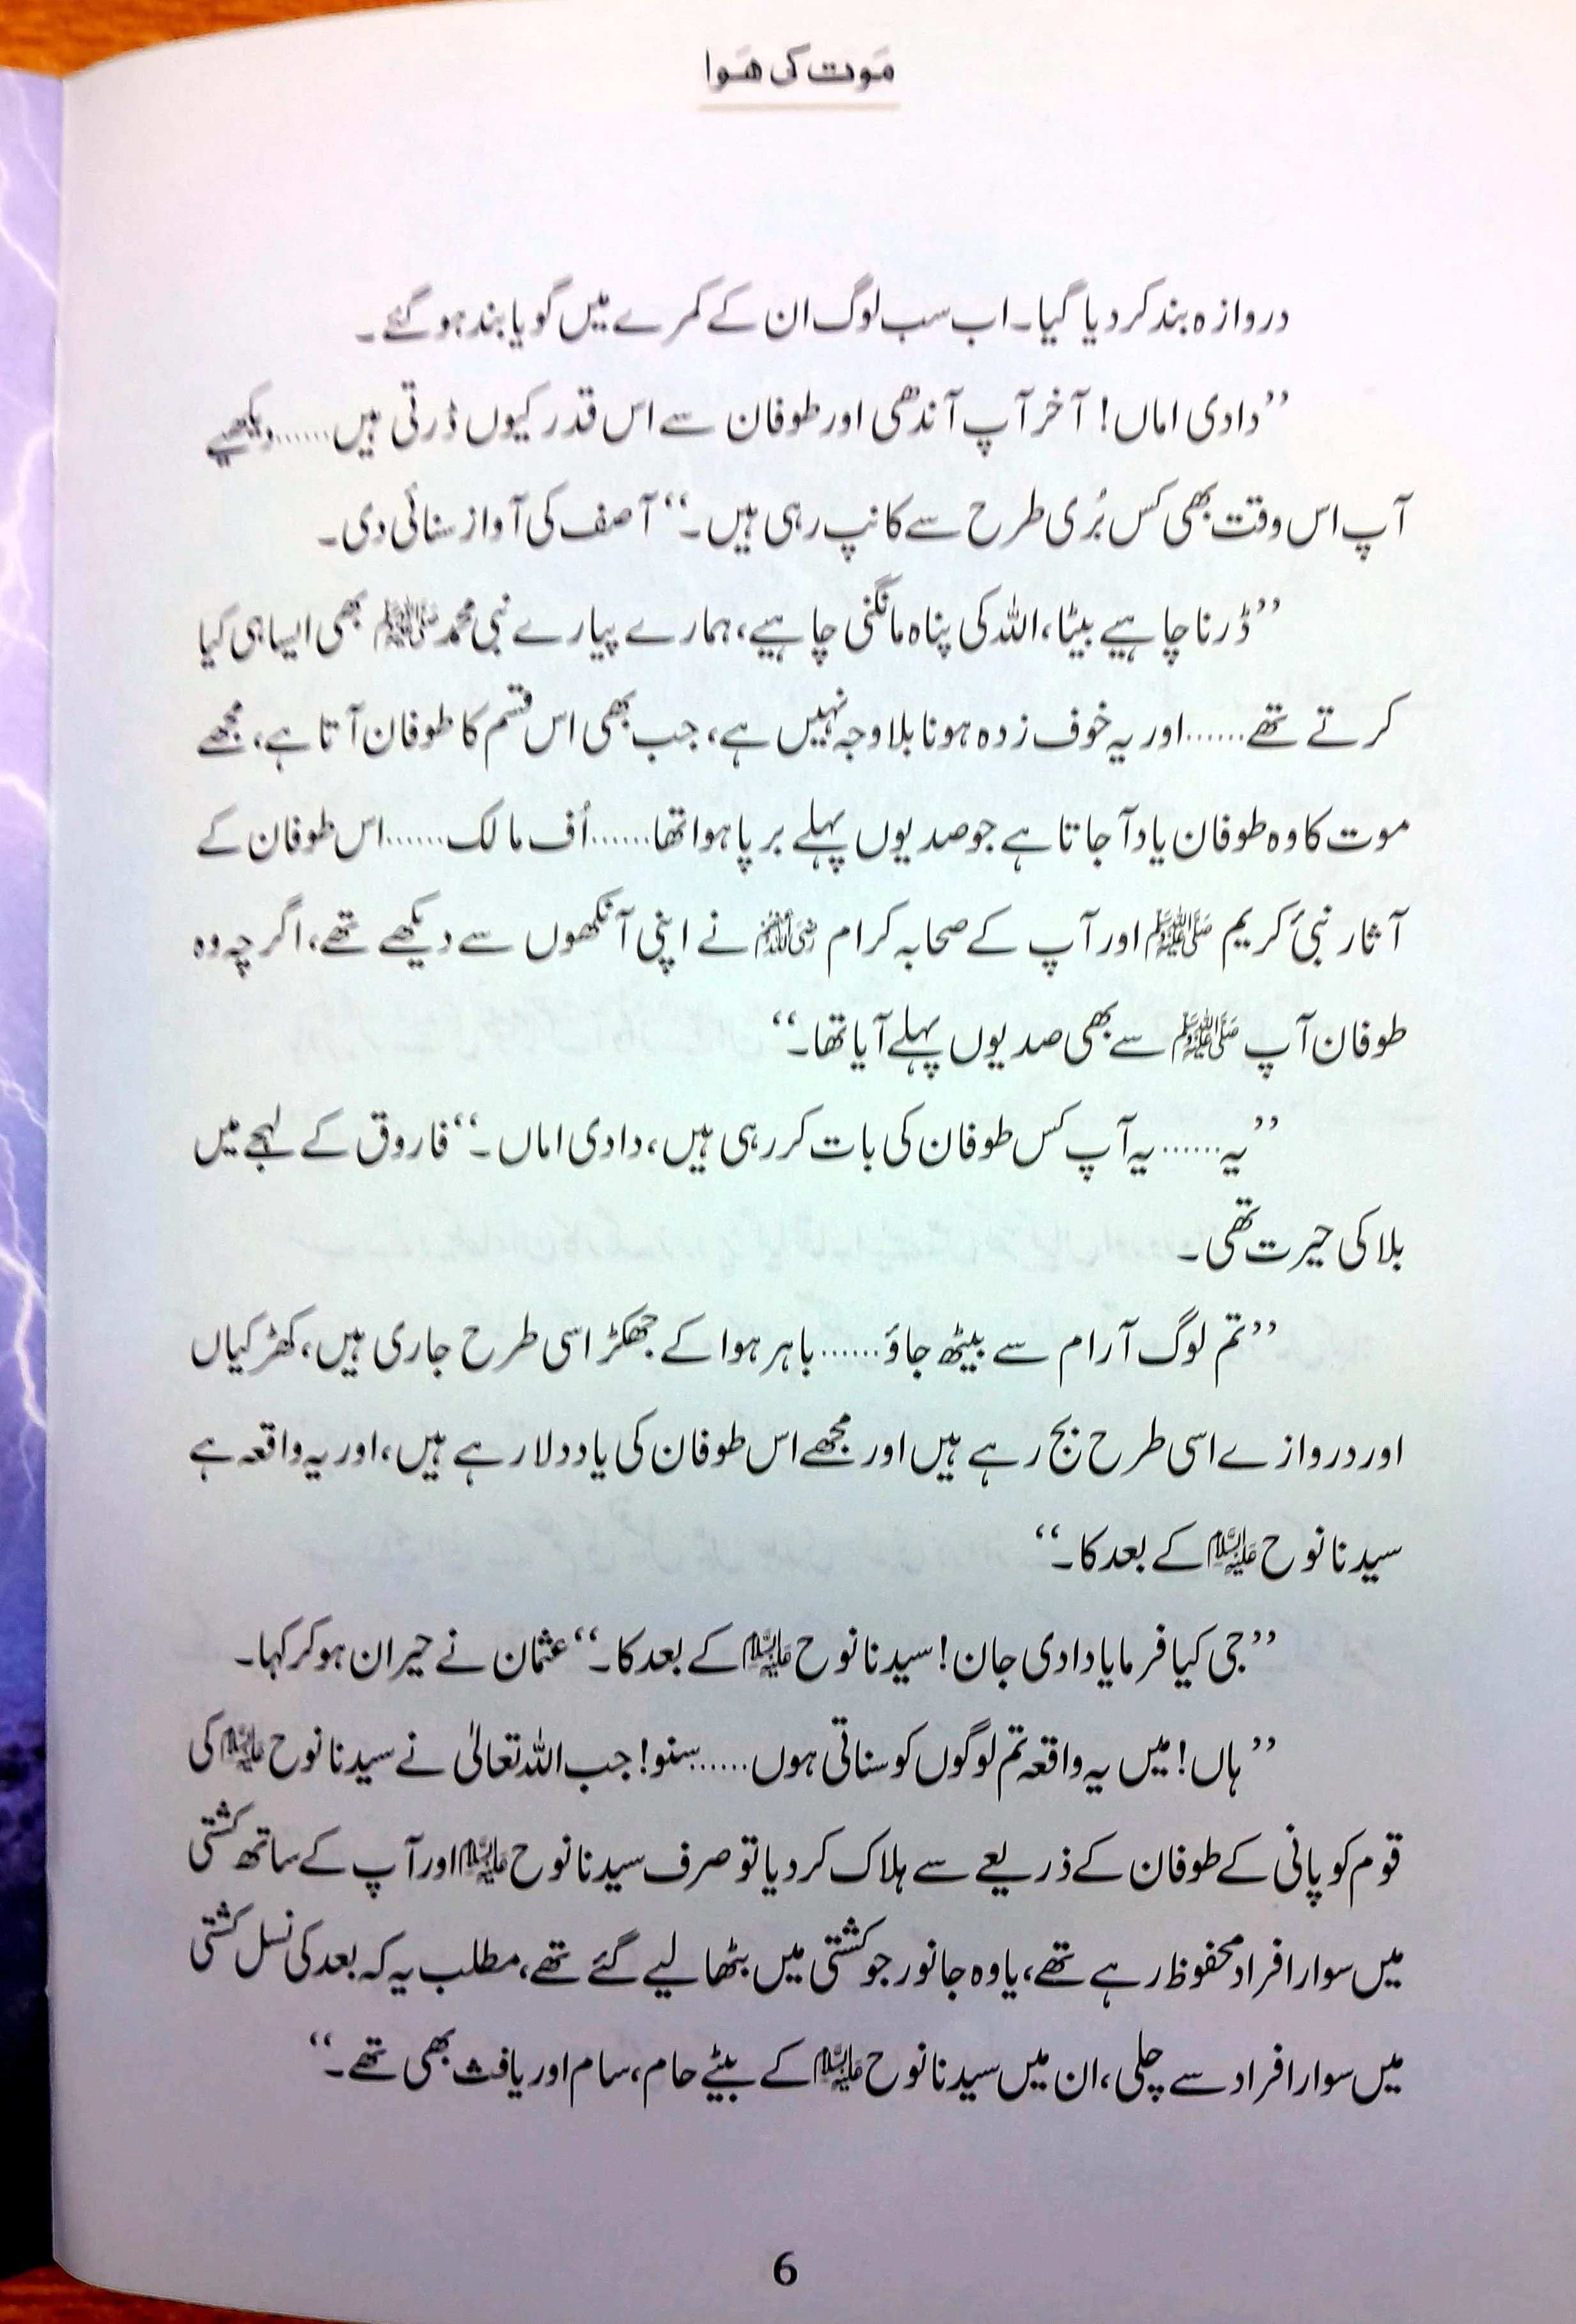 مَوت کی هَوا
دروازہ بند کر دیا گیا۔ اب سب لوگ ان کے کمرے میں گویا بند ہو گئے۔
’’دادی اماں! آخر آپ آندھی اور طوفان سے اس قدر کیوں ڈرتی ہیں......دیکھیے
آپ اس وقت بھی کس بُری طرح سے کانپ رہی ہیں۔‘‘ آصف کی آواز سنائی دی۔
’’ڈرنا چاہیے بیٹا، اللہ کی پناہ مانگنی چاہیے، ہمارے پیارے نبی محمد ﷺ بھی ایسا ہی کیا
کرتے تھے......اور یہ خوف زدہ ہونا بلاوجہ نہیں ہے، جب بھی اس قسم کا طوفان آتا ہے، مجھے
موت کا وہ طوفان یاد آ جاتا ہے جو صدیوں پہلے برپا ہوا تھا......اُف مالک......اس طوفان کے
آثار نبیٔ کریم ﷺ اور آپ کے صحابہ کرام رضی اللہ عنہم نے اپنی آنکھوں سے دیکھے تھے، اگرچہ وہ
طوفان آپ ﷺ سے بھی صدیوں پہلے آیا تھا۔‘‘
’’یہ......یہ آپ کس طوفان کی بات کر رہی ہیں، دادی اماں۔‘‘ فاروق کے لہجے میں
بلا کی حیرت تھی۔
’’تم لوگ آرام سے بیٹھ جاؤ......باہر ہوا کے جھکڑ اسی طرح جاری ہیں، کھڑکیاں
اور دروازے اسی طرح بج رہے ہیں اور مجھے اس طوفان کی یاد دلا رہے ہیں، اور یہ واقعہ ہے
سیدنا نوح علیہ السلام کے بعد کا۔‘‘
’’جی کیا فرمایا دادی جان! سیدنا نوح علیہ السلام کے بعد کا۔‘‘ عثمان نے حیران ہو کر کہا۔
’’ہاں! میں یہ واقعہ تم لوگوں کو سناتی ہوں......سنو! جب اللہ تعالیٰ نے سیدنا نوح علیہ السلام کی
قوم کو پانی کے طوفان کے ذریعے سے ہلاک کر دیا تو صرف سیدنا نوح علیہ السلام اور آپ کے ساتھ کشتی
میں سوار افراد محفوظ رہے تھے، یا وہ جانور جو کشتی میں بٹھا لیے گئے تھے، مطلب یہ کہ بعد کی نسل کشتی
میں سوار افراد سے چلی، ان میں سیدنا نوح علیہ السلام کے بیٹے حام، سام اور یافث بھی تھے۔‘‘
6